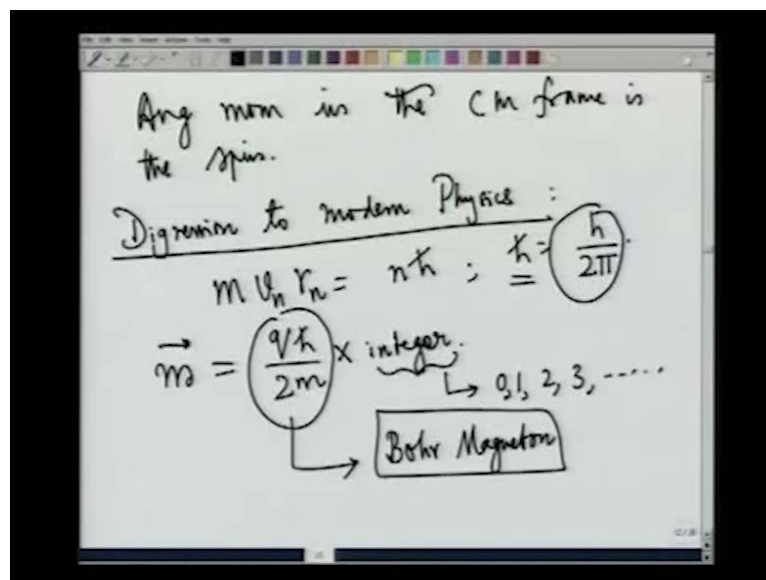 Ang mom in the CM frame is
the spin.
Digression to modern Physics :
m v_n r_n = nħ ; ħ = h/2π .
m⃗ = qħ/2m × integer.
↳ 0,1, 2, 3, -----
Bohr Magneton